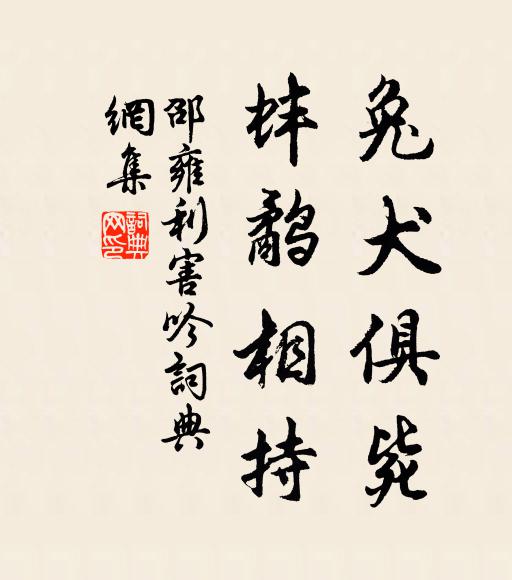 兔犬俱毙
蚌鹬相持
邵雍利害吟詞典
網集
詞典
网印